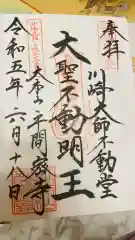 奉拝
川崎大師不動堂
大聖不動明王
大本山平間寺
令和五年六月十八日